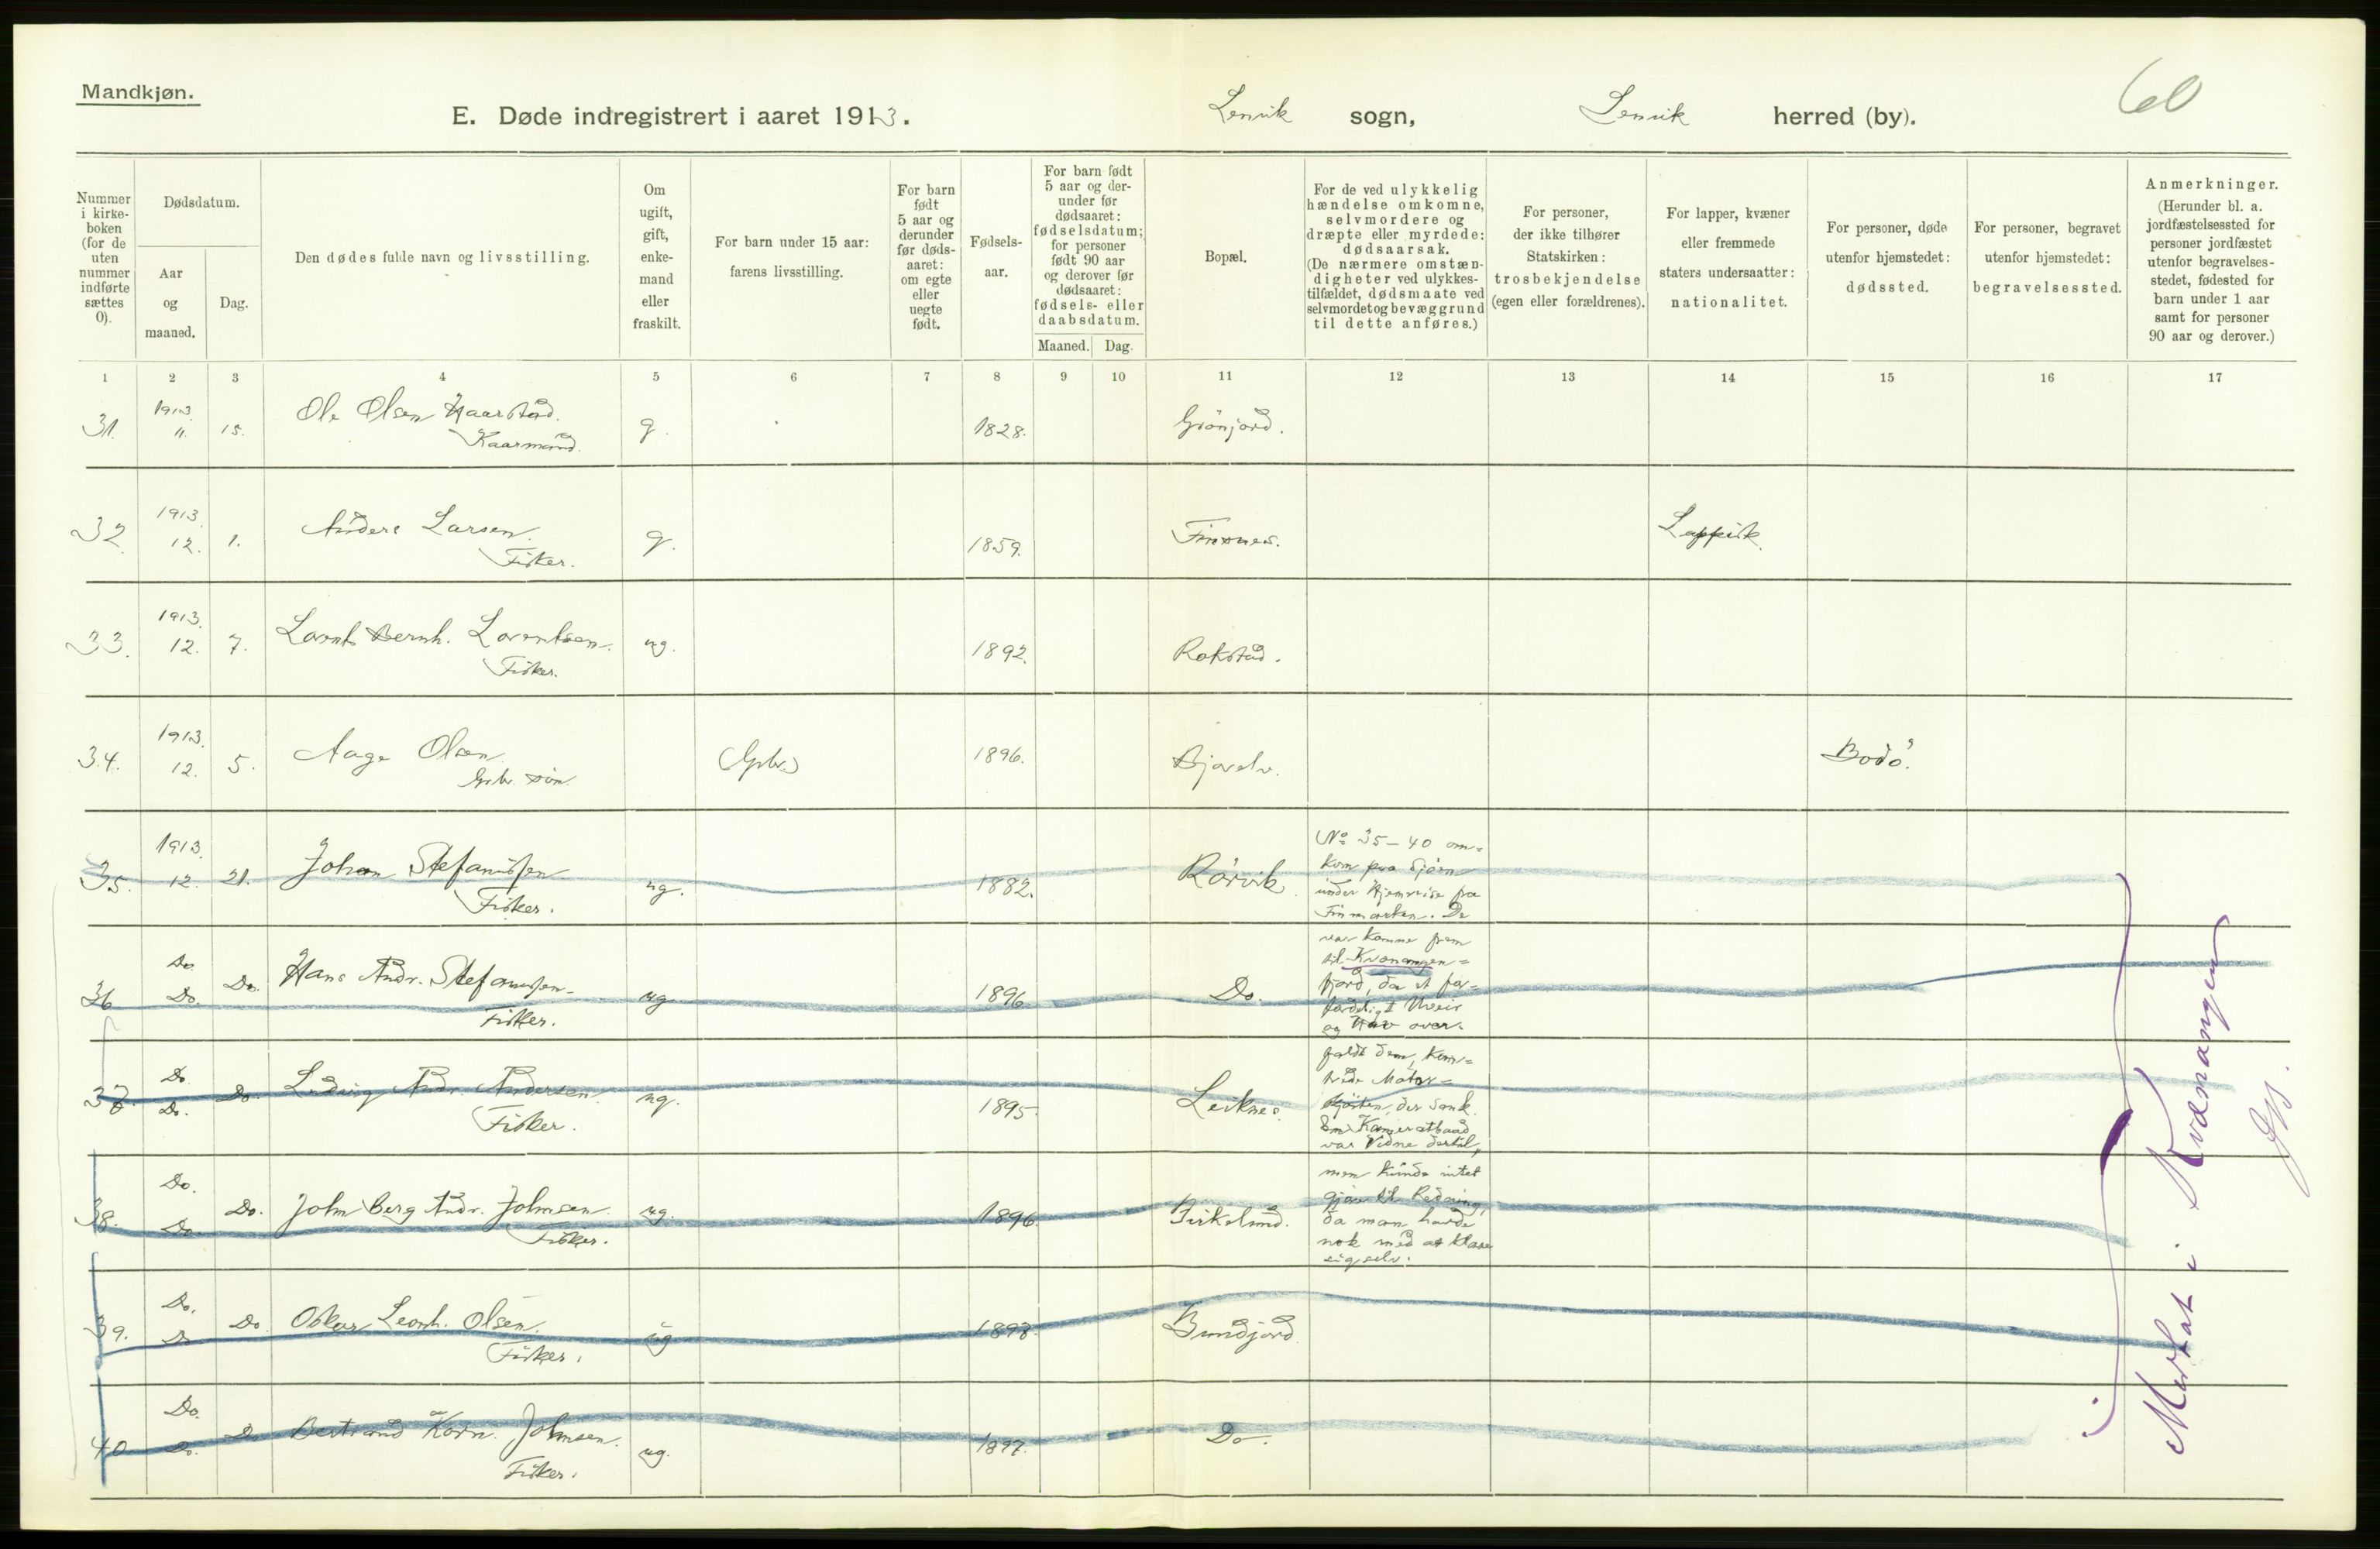 Mandkjøn.
60
E. Døde indregistrert i aaret 1913.
Lenvik sogn, Lenvik herred (by).
Nummer
i kirke-
boken
(for de
uten
nummer
indførte
sættes
0).
Dødsdatum.
Aar
og
maaned.
Dag.
Den dødes fulde navn og livsstilling.
Om
ugift,
gift,
enke-
mand
eller
fraskilt.
For barn under 15 aar:
farens livsstilling.
For barn
født
5 aar og
derunder
før døds-
aaret:
om egte
eller
uegte
født.
Fødsels-
aar.
For barn født
5 aar og der-
under før
dødsaaret:
fødselsdatum;
for personer
født 90 aar
og derover før
dødsaaret:
fødsels- eller
daabsdatum.
Maaned. Dag.
Bopæl.
For de ved ulykkelig
hændelse omkomne,
selvmordere og
dræpte eller myrdede:
dødsaarsak.
(De nærmere omstæn-
digheter ved ulykkes-
tilfældet, dødsmaate ved
selvmordet og bevæggrund
til dette anføres.)
For personer,
der ikke tilhører
Statskirken:
trosbekjendelse
(egen eller forældrenes).
For lapper, kvæner
eller fremmede
staters undersaatter:
nationalitet.
For personer, døde
utenfor hjemstedet:
dødssted.
For personer, begravet
utenfor hjemstedet:
begravelsessted.
Anmerkninger.
(Herunder bl. a.
jordfæstelsessted for
personer jordfæstet
utenfor begravelses-
stedet, fødested for
barn under 1 aar
samt for personer
90 aar og derover.)
1 2 3 4 5 6 7 8 9 10 11 12 13 14 15 16 17
31. 1913. 11. 15. Ole Olsen Haarstad. g. 1828. Grönjord.
Kaarmand.
32. 1913. 12. 1. Anders Larsen. g. 1859. Finsnes. Lappisk.
Fisker.
33. 1913. 12. 7. Lornts Bernh. Lorentsen. ug. 1892. Rokstad.
Fisker.
34. 1913. 12. 5. Aage Olsen (Gbr.) 1896. Bjorelv. Bodö.
Gbr. sön.
35. 1913. 12. 21. Johan Stefanussen ug. 1882. Rörvik.
Fisker.
No 35-40 om-
kom paa Sjöen
under Hjemreise fra
Finmarken. De
36 Do. Do. Do. Hans Andr. Stefanussen ug 1896 Do.
Fisker.
var komne frem
til Kvænangen-
fjord, da et for-
færdeligt Uveir
og Hav over-
37. Do. Do. Do. Ludvig Andr. Andersen. ug. 1895. Leiknes.
Fisker.
faldt dem, kan-
trede Motor-
skjöiten, der sank.
En Kameratbaad
var Vidne dertil,
38. Do. Do. Do. John Berg Andr. Johnsen. ug. 1896. Birkelund.
Fisker.
men kunde intet
gjöre til Redning,
da man havde
nok med at klare
sig selv.
39. Do. Do Do. Oskar Leonh. Olsen. ug 1898. Bundjord.
Fisker.
40 Do. Do. Do Bertrand Korn. Johnsen. ug. 1897. Do.
Fisker.
Medtat i Kvænangen